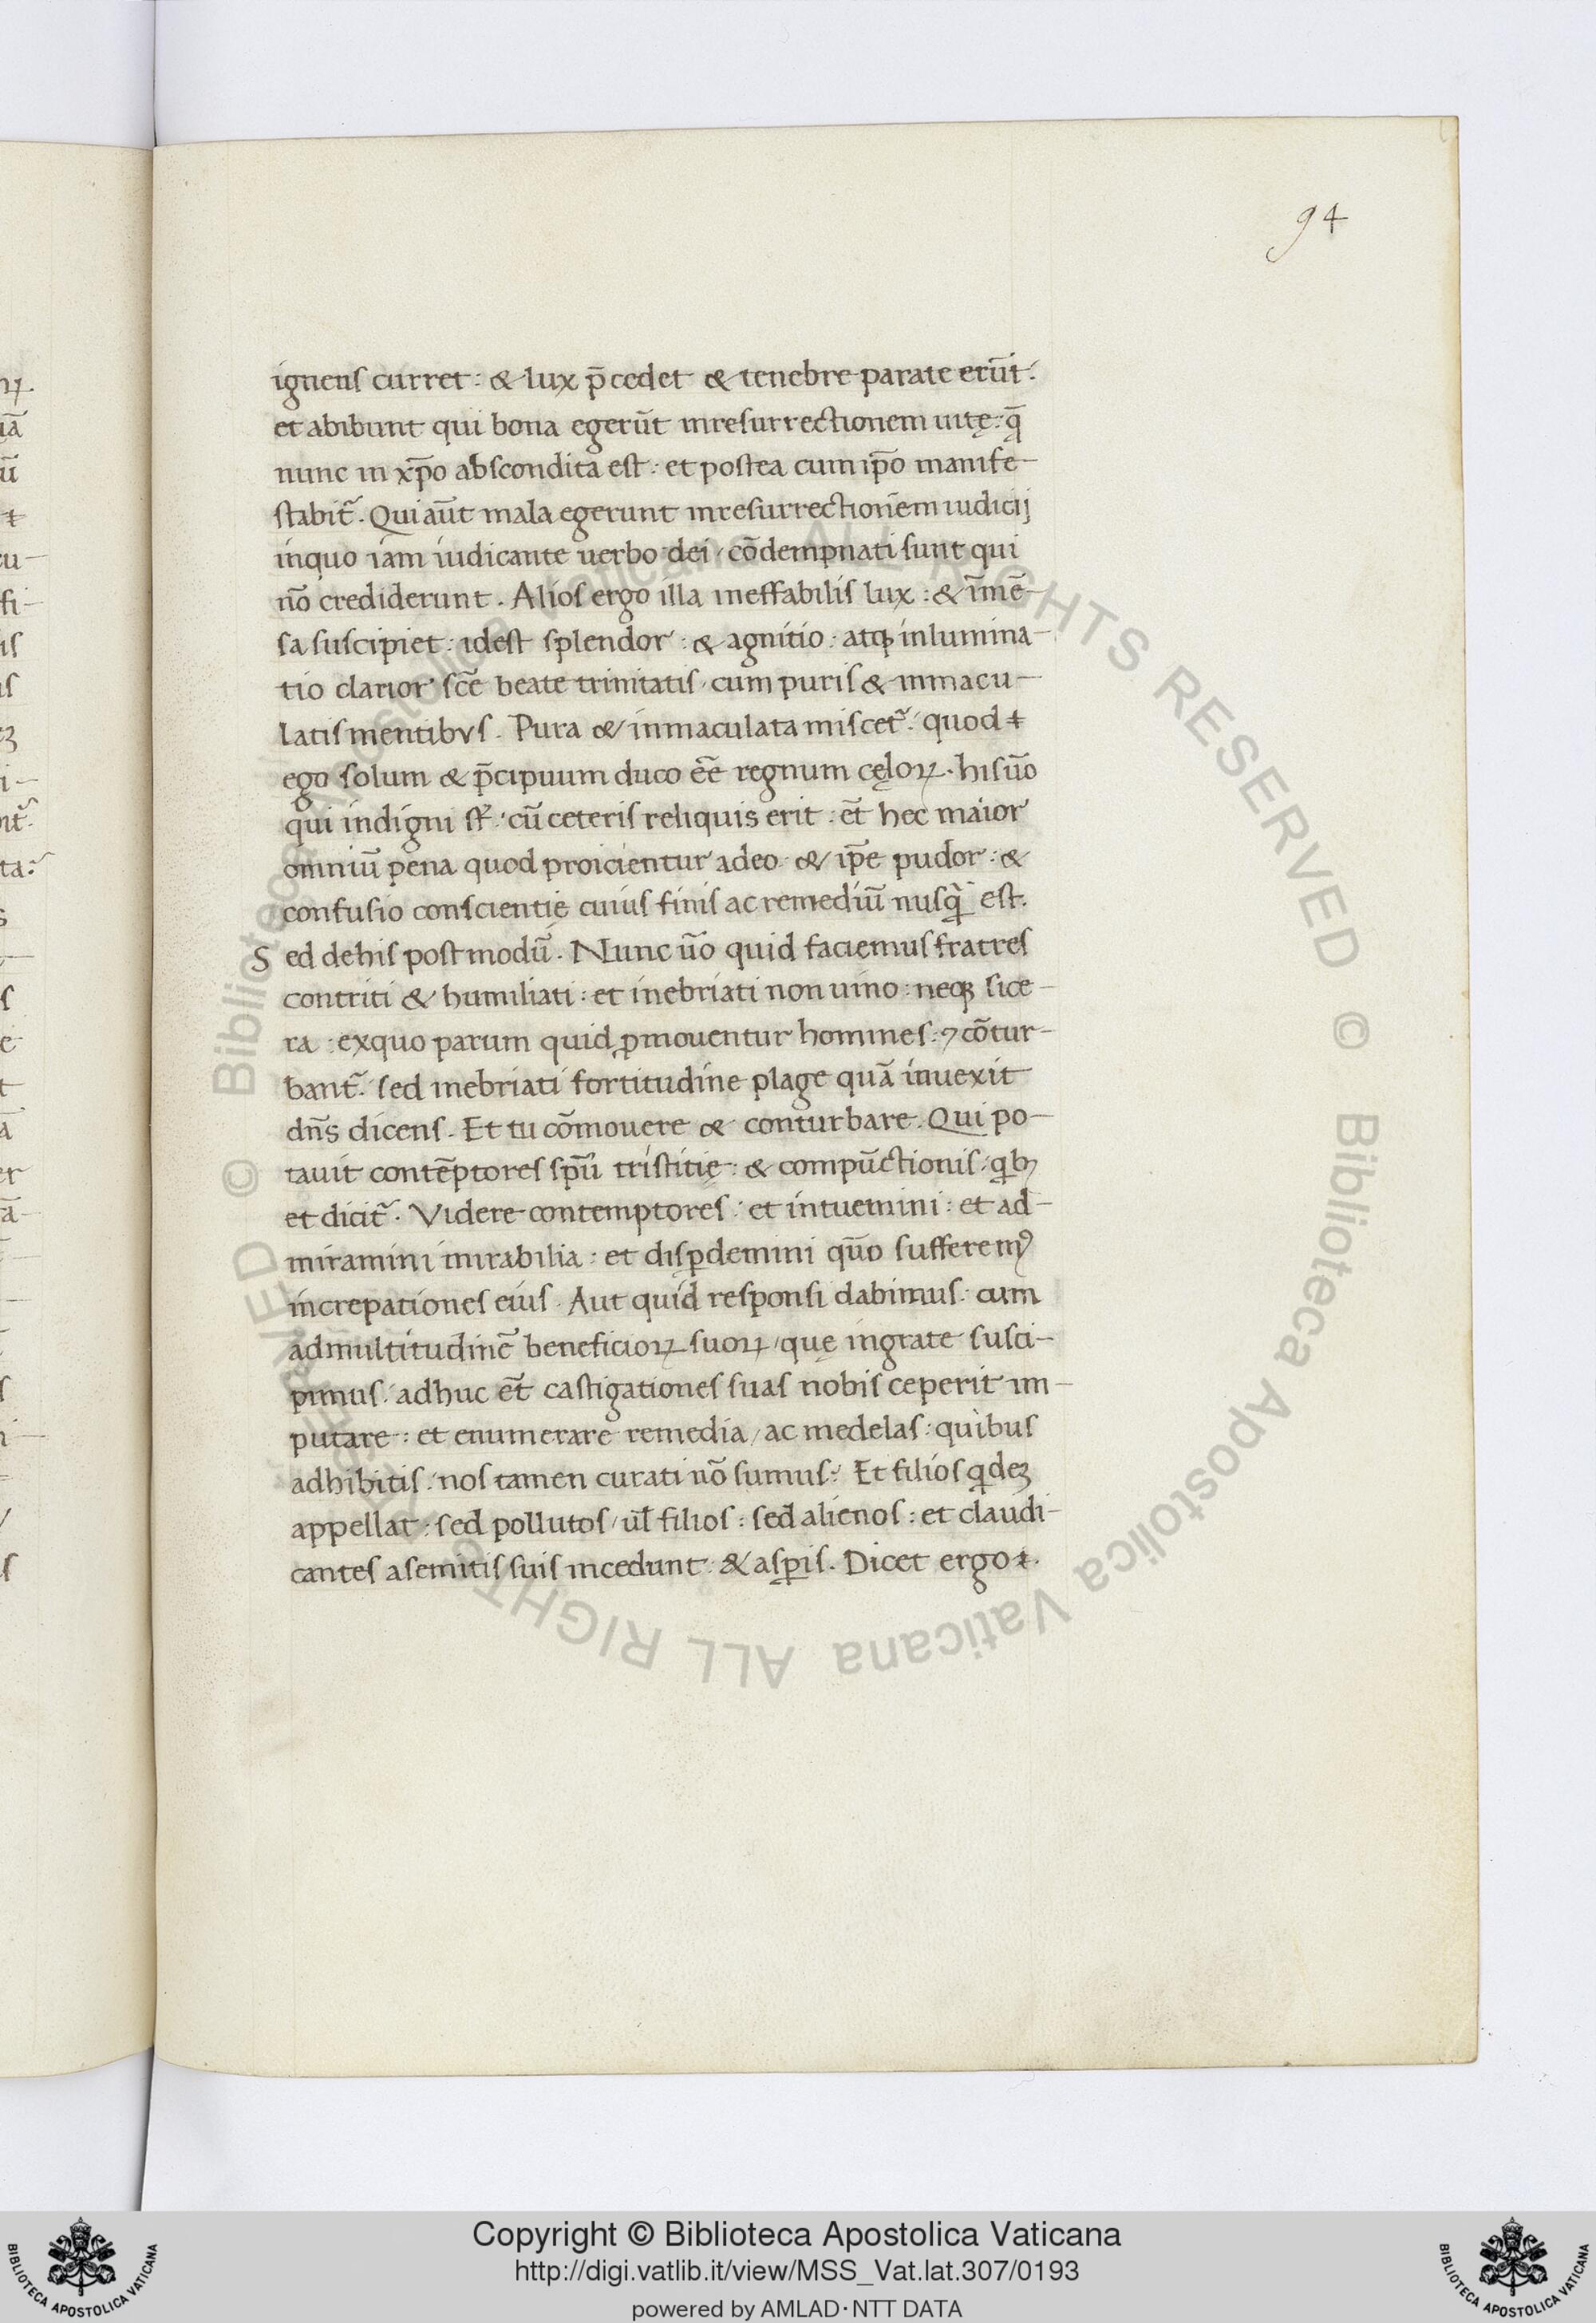 94
igneus curret : & lux p̄cedet & tenebre parate erūt :
et abibunt qui bona egerūt inresurrectionem uitę : q̄
nunc in xp̄o abscondita est : et postea cum ip̄o manife-
stabit᷑ . Qui aūt mala egerunt inresurrectionem iudicij
inquo iam iudicante uerbo dei / cōdempnati sunt qui
nō crediderunt . Alios ergo illa ineffabilis lux : & īmē-
sa suscipiet : idest splendor : & agnitio : atq; inlumina-
tio clarior sc̄e beate trinitatis / cum puris & inmacu-
latis mentibus . Pura & inmaculata miscet᷑ : quod ⁊
ego solum & p̄cipuum duco eē̄ regnum cęloꝝ . his ūo
qui indigni st̄ : cū ceteris reliquis erit : et̄ hec maior
omniū pena quod proicientur adeo & ip̄e pudor : &
confusio conscientię cuius finis ac remediū nusq̄ est .
Sed dehis postmodū . Nunc ūo quid faciemus fratres
contriti & humiliati : et inebriati non uino : neq; sice-
ra : exquo parum quid ꝓmouentur homines : ⁊ cōtur-
bant᷑ : sed inebriati fortitudine plage quā inuexit
dn̄s dicens . Et tu cōmouere & conturbare . Qui po-
tauit contēptores sp̄u tristitię : & compūctionis / qib;
et dicit᷑ . Videre contemptores : et intuemini : et ad-
miramini mirabilia : et disꝑdemini quō sufferemꝰ
increpationes eius . Aut quid responsi dabimus : cum
admultitudinē beneficioꝝ suoꝝ / quę ingrate susci-
pimus : adhuc et̄ castigationes suas nobis ceperit im-
putare : et enumerare remedia / ac medelas : quibus
adhibitis : nos tamen curati nō sumus ? Et filios qideꝫ
appellat : sed pollutos / ul̄ filios : sed alienos : et claudi-
cantes asemitis suis incedunt : & asꝑis . Dicet ergo ⁊ .
Copyright © Biblioteca Apostolica Vaticana
http://digi.vatlib.it/view/MSS_Vat.lat.307/0193
powered by AMLAD·NTT DATA